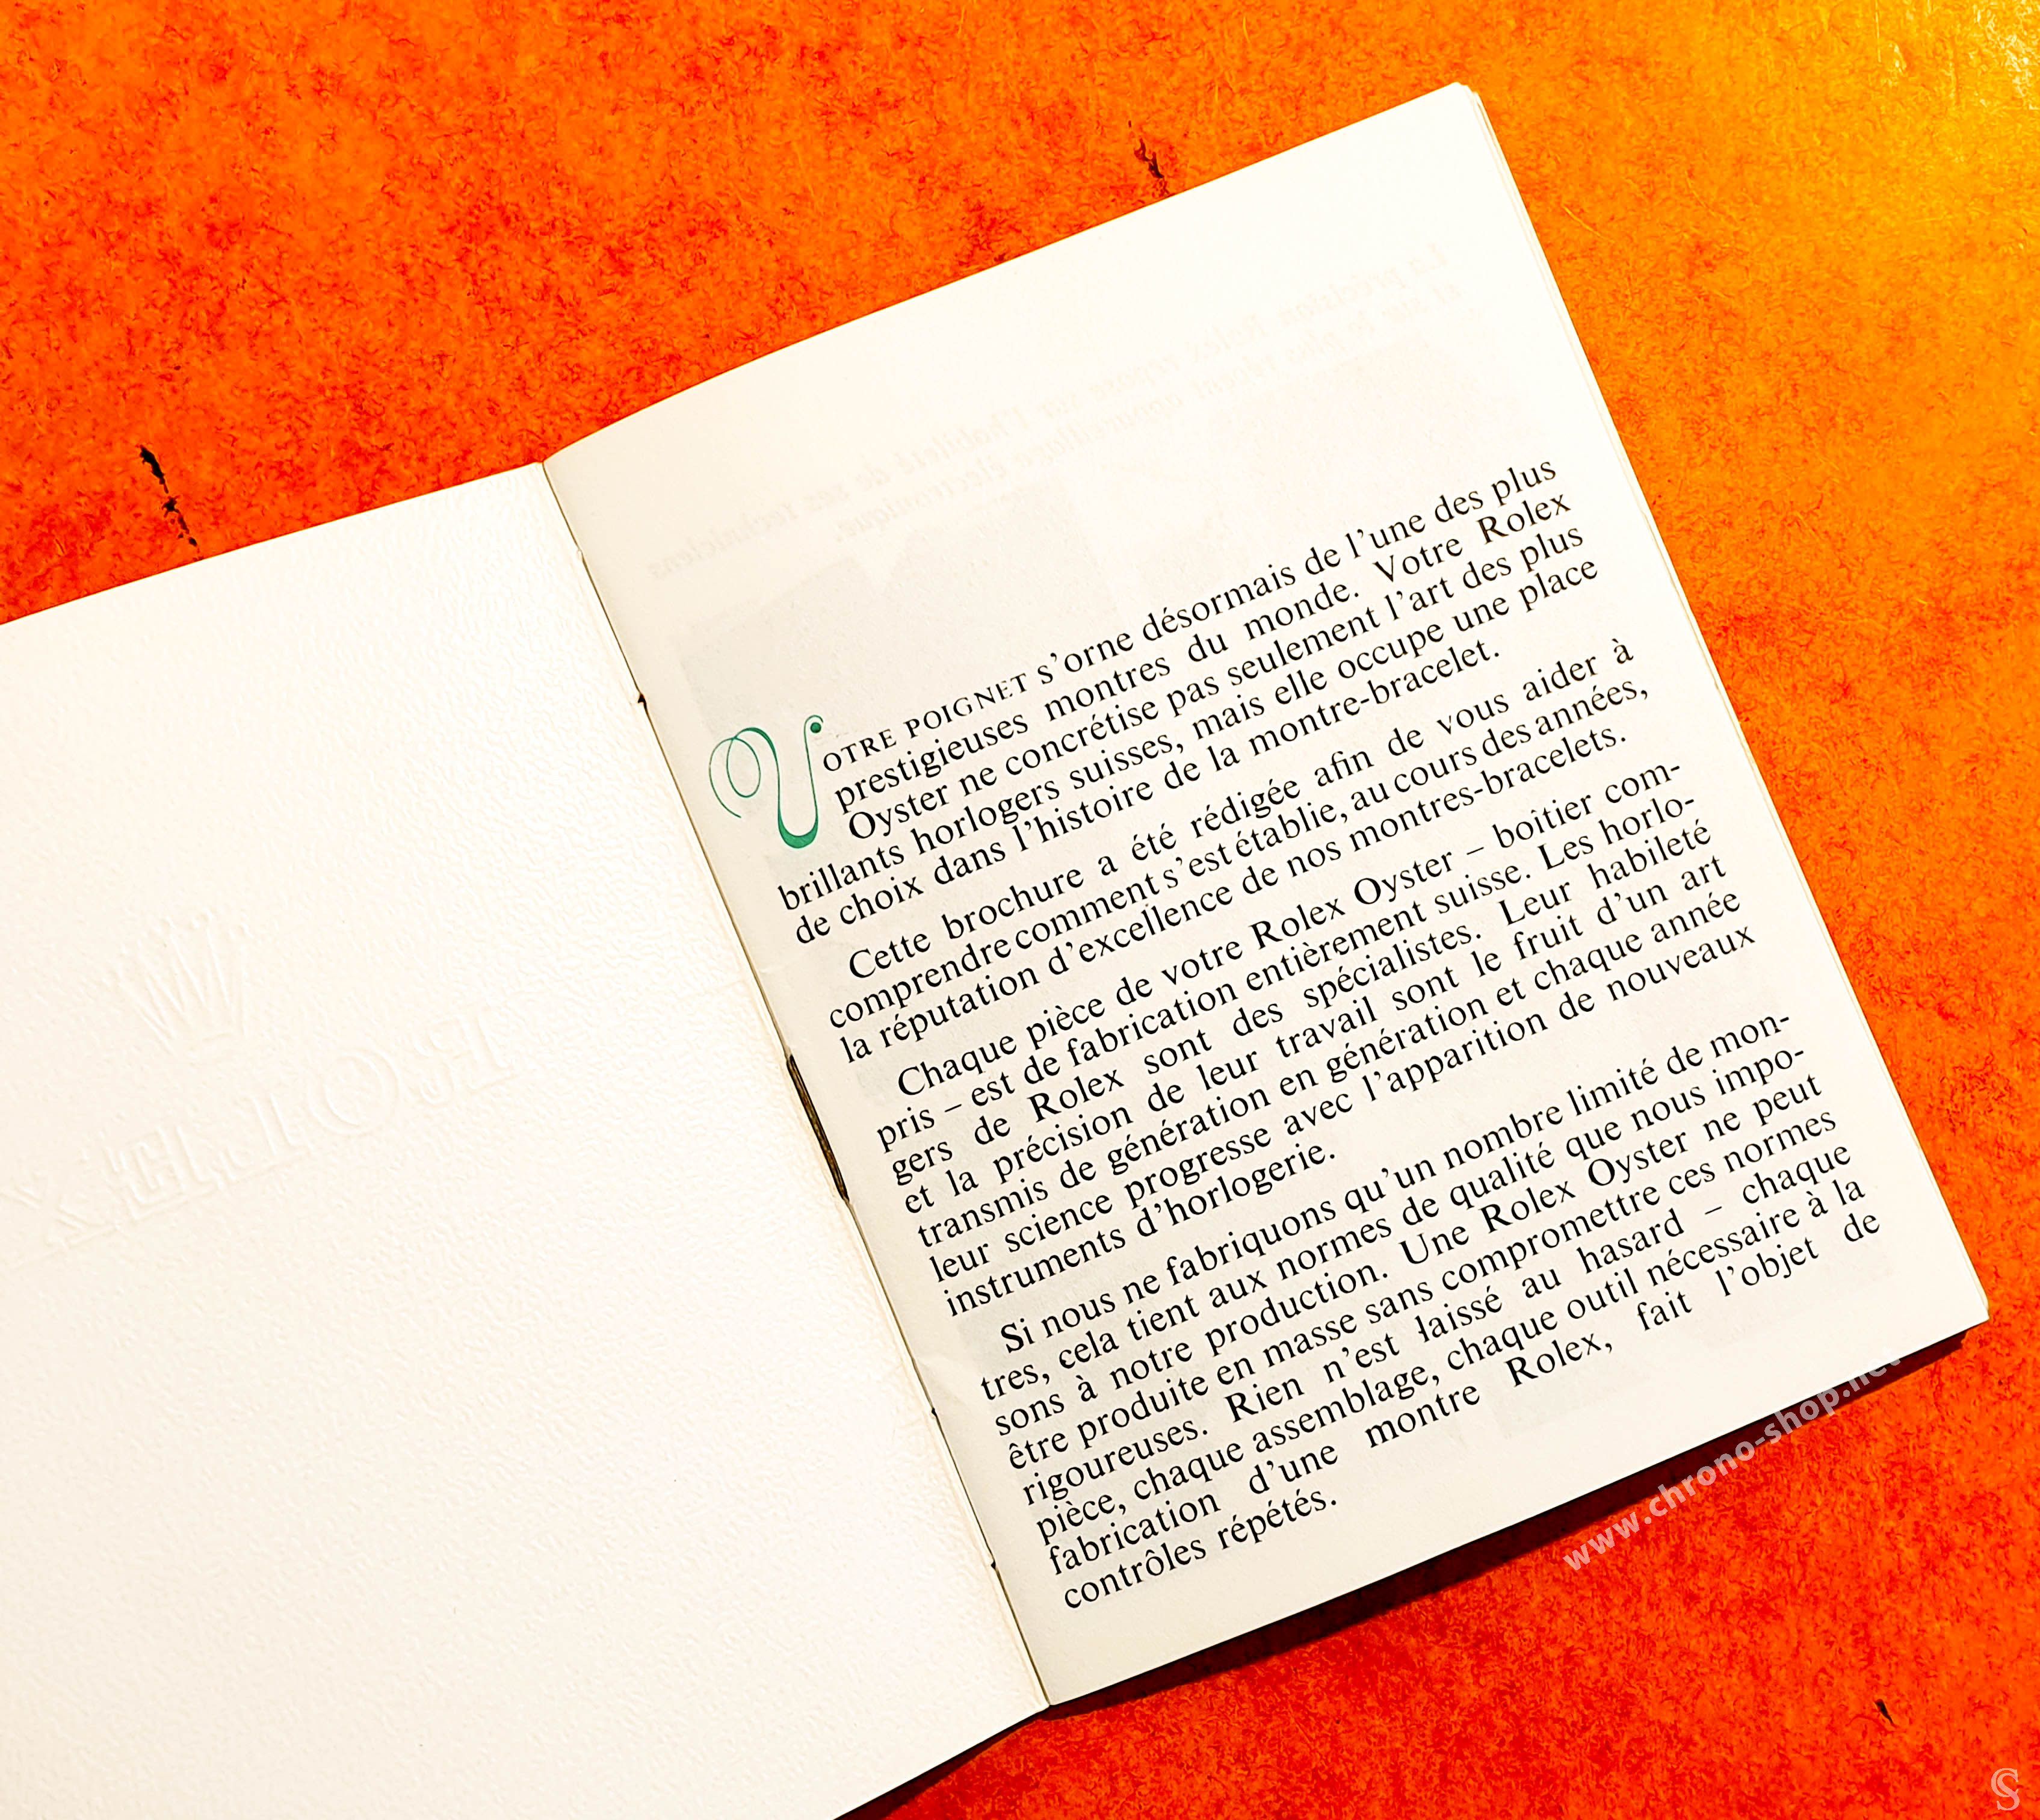 ROLEX
VOTRE POIGNET s'orne désormais de l'une des plus
prestigieuses montres du monde. Votre Rolex
Oyster ne concrétise pas seulement l'art des plus
brillants horlogers suisses, mais elle occupe une place
de choix dans l'histoire de la montre-bracelet.
Cette brochure a été rédigée afin de vous aider à
comprendre comment s'est établie, au cours des années,
la réputation d'excellence de nos montres-bracelets.
Chaque pièce de votre Rolex Oyster – boîtier com-
pris – est de fabrication entièrement suisse. Les horlo-
gers de Rolex sont des spécialistes. Leur habileté
et la précision de leur travail sont le fruit d'un art
transmis de génération en génération et chaque année
leur science progresse avec l'apparition de nouveaux
instruments d'horlogerie.
Si nous ne fabriquons qu'un nombre limité de mon-
tres, cela tient aux normes de qualité que nous impo-
sons à notre production. Une Rolex Oyster ne peut
être produite en masse sans compromettre ces normes
rigoureuses. Rien n'est laissé au hasard – chaque
pièce, chaque assemblage, chaque outil nécessaire à la
fabrication d'une montre Rolex, fait l'objet de
contrôles répétés.
www.chrono-shop.net